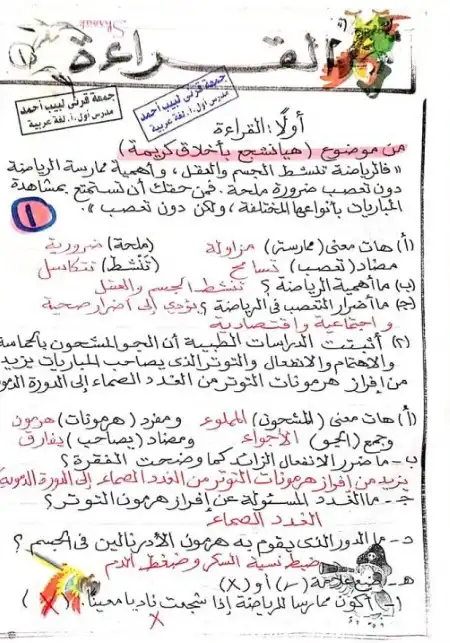 القراءة
(١)
Shrouk
جمعة قرني لبيب أحمد
مدرس أول أ. لغة عربية
جمعة قرني لبيب أحمد
مدرس أول أ. لغة عربية
أولًا: القراءة
من موضوع (هيا نشجع بأخلاق كريمة)
« فالرياضة تنشط الجسم والعقل، وأهمية ممارسة الرياضة
دون تعصب ضرورة ملحة. فمن حقك أن تستمتع بمشاهدة
المباريات بأنواعها المختلفة، ولكن دون تعصب ».
١
(أ) هات معنى (ممارسة) مزاولة (ملحة) ضرورية
مضاد (تعصب) تسامح (تنشط) تتكاسل
(ب) ما أهمية الرياضة؟ تنشط الجسم والعقل
(ج) ما أضرار التعصب في الرياضة؟ يؤدي إلى أضرار صحية
واجتماعية واقتصادية
(٢) أثبتت الدراسات الطبية أن الجو المشحون بالحماسة
والاهتمام والانفعال والتوتر الذي يصاحب المباريات يزيد
من إفراز هرمونات التوتر من الغدد الصماء إلى الدورة
(أ) هات معنى (المشحون) المملوء ومفرد (هرمونات) هرمون
وجمع (الجو) الأجواء ومضاد (يصاحب) يفارق
ب- ما ضرر الانفعال الزائد كما وضحت الفقرة؟
يزيد من إفراز هرمونات التوتر من الغدد الصماء إلى الدورة الدموية
ج- ما الغدد المسئولة عن إفراز هرمون التوتر؟
الغدد الصماء
د- ما الدور الذي يقوم به هرمون الأدرنالين في الجسم؟
ضبط نسبة السكر وضغط الدم
هـ- ضع علامة (✓) أو (X)
١- أكون ممارسا للرياضة إذا شجعت ناديا معينا. (X)
X